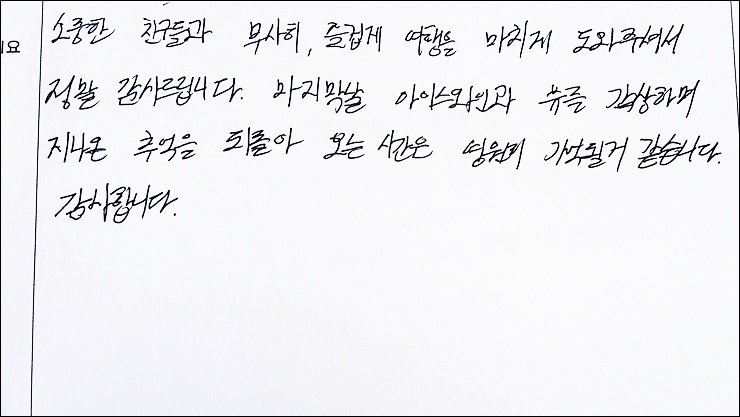 소중한 친구들과 무사히, 즐겁게 여행을 마치게 도와주셔서
세요 정말 감사드립니다. 마지막날 아이스와인과 뷰를 감상하며
지나온 추억을 되돌아 오는 시간은 영원히 기억될거 같습니다.
감사합니다.